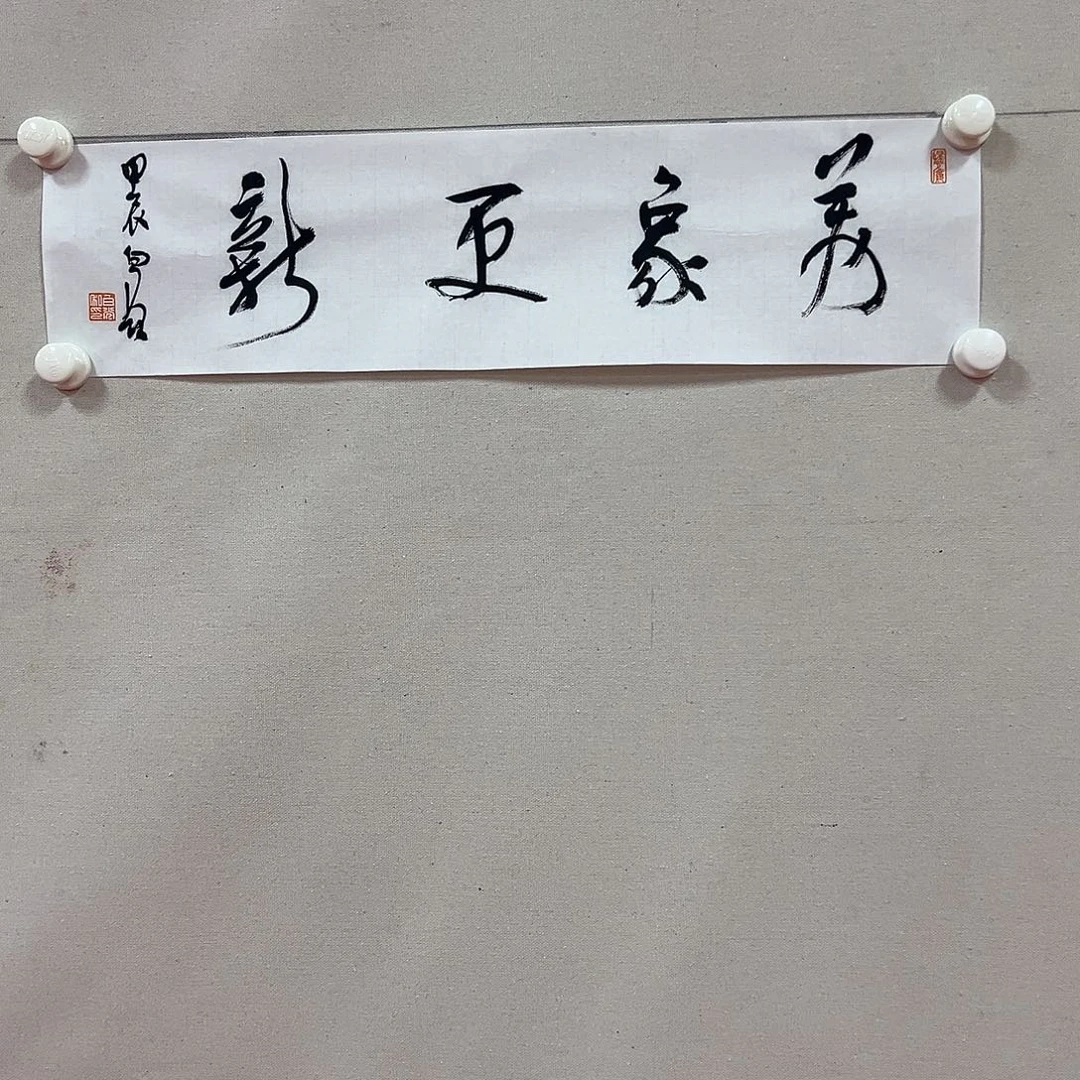 萬象更新
甲辰